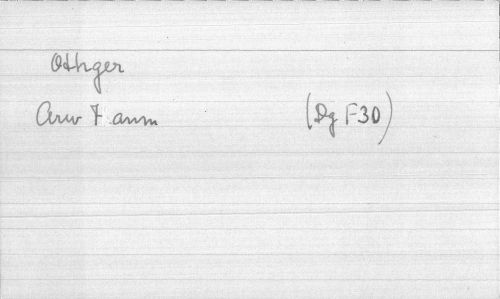 Othger
Arw 7 anm (Dg F30)